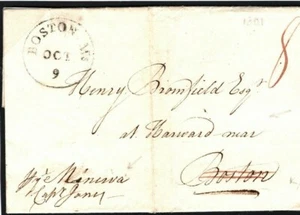 BOSTON Ms
OCT
9
8
Henry Bromfield Esqr
at Harward near
Boston
pr Minerva
Capt Jones